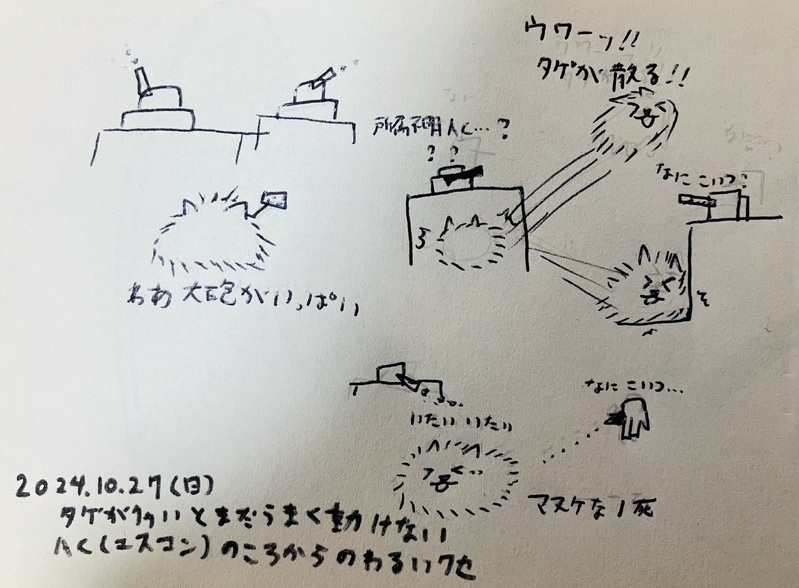 ウワーッ!!
タゲが散る!!
所属不明AC…?
? ?
なにこいつ?
わあ 大砲がいっぱい
なにこいつ…
いたい いたい
マヌケな1死
2024.10.27(日)
タゲが多いとまだうまく動けない
AC(エスコン)のころからのわるいクセ